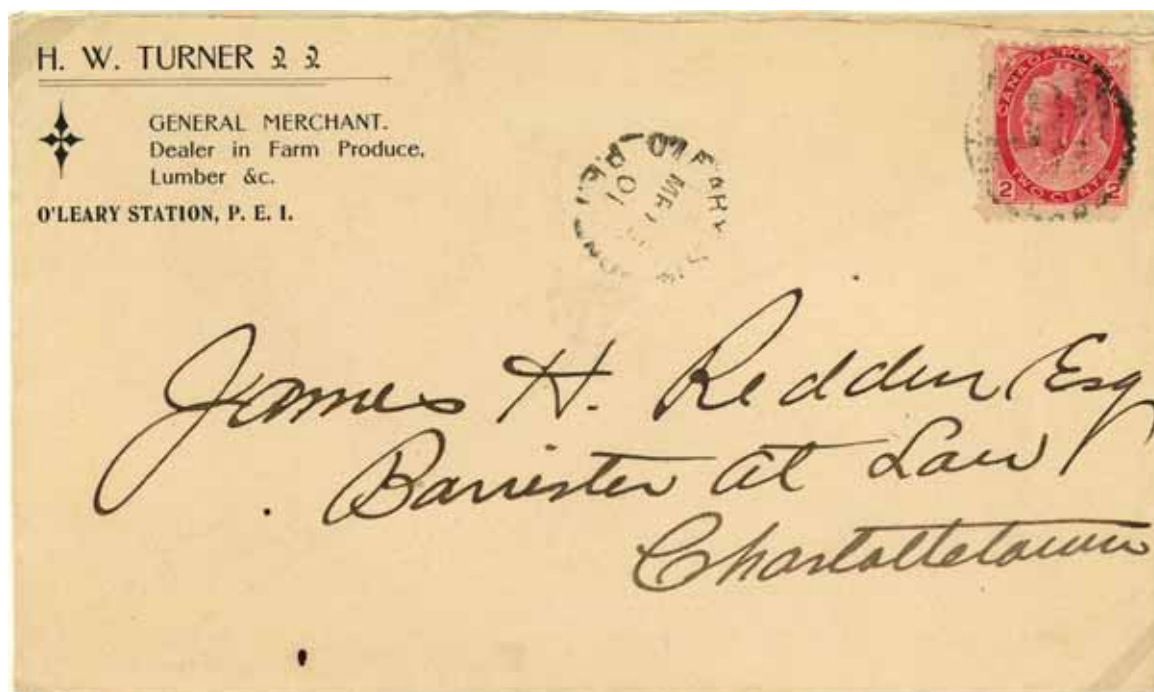 H. W. TURNER
GENERAL MERCHANT.
Dealer in Farm Produce,
Lumber &c.
O'LEARY STATION, P. E. I.
CANADA POSTAGE
TWO CENTS
2 2
O'LEARY
P.E.I.
01
James H. Reddin Esq
Barrister at Law
Charlottetown